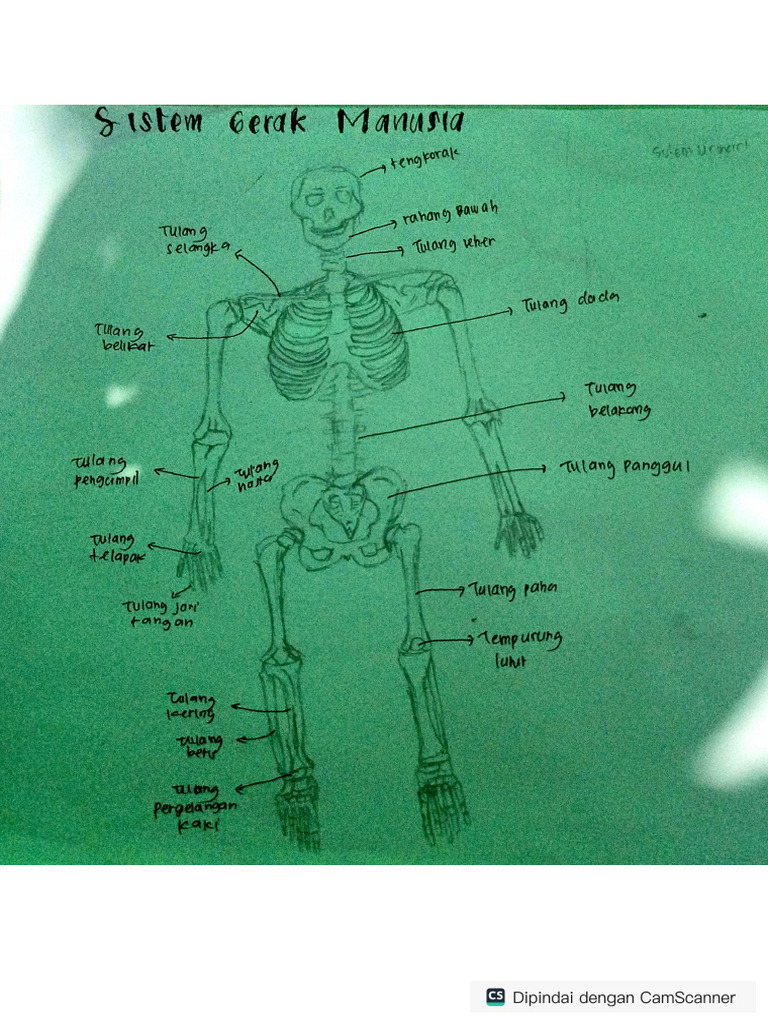 Sistem Gerak Manusia
tengkorak
rahang Bawah
Tulang leher
Tulang
selangka
Tulang dada
Tulang
belikat
Tulang
belakang
Tulang
pengumpil
Tulang
hasta
Tulang Panggul
Tulang
telapak
Tulang jari
tangan
Tulang paha
Tempurung
lutut
Tulang
kering
Tulang
betis
Tulang
Pergelangan
kaki
CS Dipindai dengan CamScanner